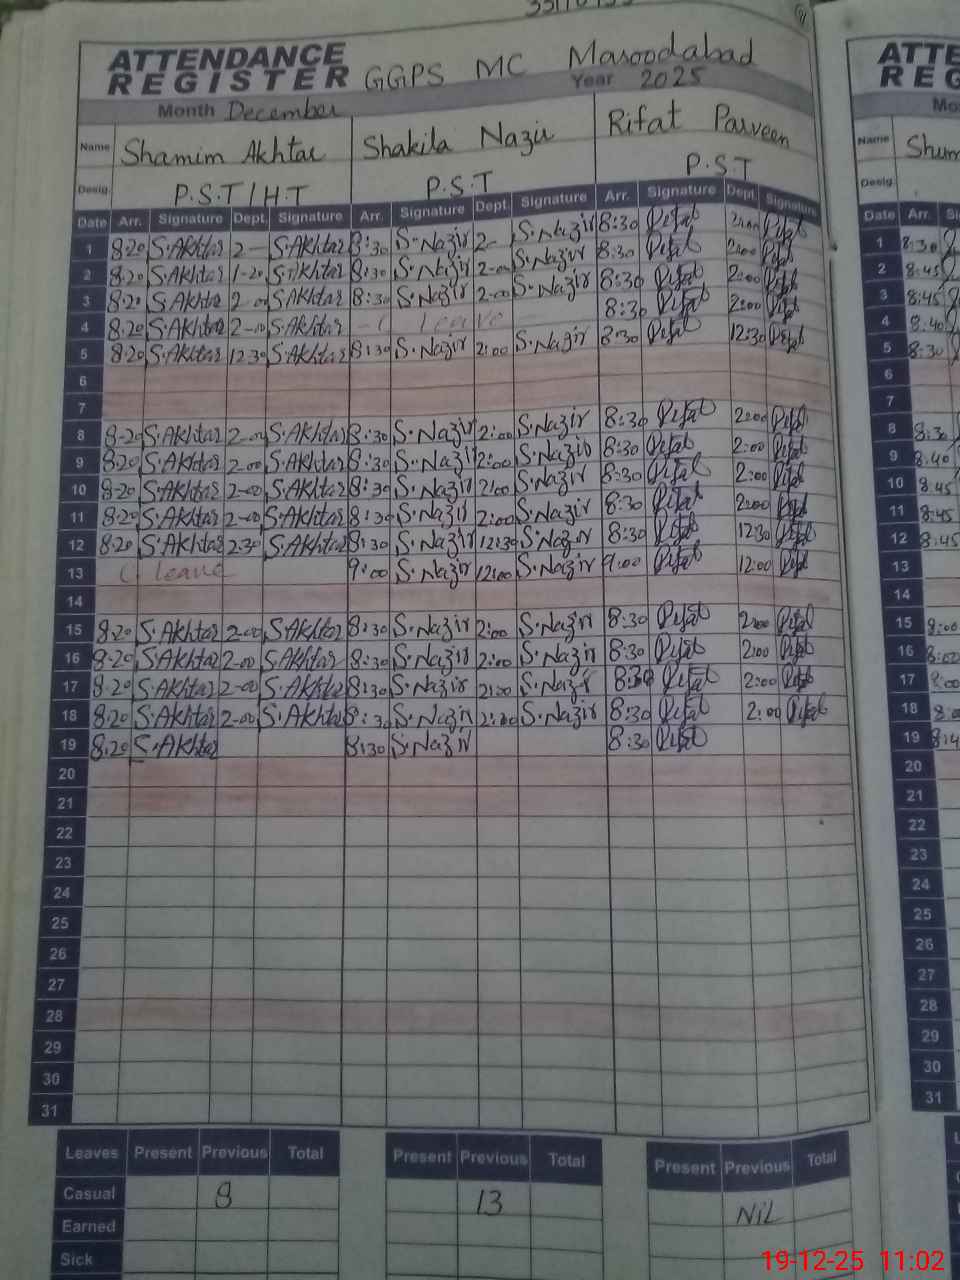 ATTENDANCE
REGISTER GGPS MC Maroodabad
Month December Year 2025
Name Shamim Akhtar Shakila Nazir Rifat Parveen Name
Desig. P.S.T/H.T P.S.T P.S.T Desig.
Date Arr. Signature Dept. Signature Arr. Signature Dept. Signature Arr. Signature Dept. Signature Date Arr.
1 8:20 S.Akhtar 2- S.Akhtar 8:30 S.Nazir 2- S.Nazir 8:30 Rifat 2:00 Rifat 1 8:30
2 8:20 S.Akhtar 1-20 S.Akhtar 8:30 S.Nazir 2-00 S.Nazir 8:30 Rifat 2:00 Rifat 2 8:45
3 8:20 S.Akhtar 2-00 S.Akhtar 8:30 S.Nazir 2-00 S.Nazir 8:30 Rifat 2:00 Rifat 3 8:45
4 8:20 S.Akhtar 2-00 S.Akhtar leave 8:30 Rifat 2:00 Rifat 4 8:40
5 8:20 S.Akhtar 12:30 S.Akhtar 8:30 S.Nazir 2:00 S.Nazir 8:30 Rifat 12:30 Rifat 5 8:30
6 6
7 7
8 8-20 S.Akhtar 2-00 S.Akhtar 8:30 S.Nazir 2:00 S.Nazir 8:30 Rifat 2:00 Rifat 8 8:30
9 8:20 S.Akhtar 2-00 S.Akhtar 8:30 S.Nazir 2:00 S.Nazir 8:30 Rifat 2:00 Rifat 9 8:40
10 8-20 S.Akhtar 2-00 S.Akhtar 8:30 S.Nazir 2:00 S.Nazir 8:30 Rifat 2:00 Rifat 10 8:45
11 8-20 S.Akhtar 2-00 S.Akhtar 8:30 S.Nazir 2:00 S.Nazir 8:30 Rifat 2:00 Rifat 11 8:45
12 8:20 S.Akhtar 2:30 S.Akhtar 8:30 S.Nazir 12:30 S.Nazir 8:30 Rifat 12:30 Rifat 12 8:45
13 C leave 9:00 S.Nazir 12:00 S.Nazir 9:00 Rifat 12:00 Rifat 13
14 14
15 8:20 S.Akhtar 2-00 S.Akhtar 8:30 S.Nazir 2:00 S.Nazir 8:30 Rifat 2:00 Rifat 15 8:00
16 8-20 S.Akhtar 2-00 S.Akhtar 8:30 S.Nazir 2:00 S.Nazir 8:30 Rifat 2:00 Rifat 16
17 8-20 S.Akhtar 2-00 S.Akhtar 8:30 S.Nazir 2:00 S.Nazir 8:30 Rifat 2:00 Rifat 17
18 8:20 S.Akhtar 2-00 S.Akhtar 8:30 S.Nazir 2:00 S.Nazir 8:30 Rifat 2:00 Rifat 18
19 8:20 S.Akhtar 8:30 S.Nazir 8:30 Rifat 19
20 20
21 21
22 22
23 23
24 24
25 25
26 26
27 27
28 28
29 29
30 30
31 31
Leaves Present Previous Total Present Previous Total Present Previous Total
Casual 8 13 Nil
Earned
Sick
19-12-25 11:02